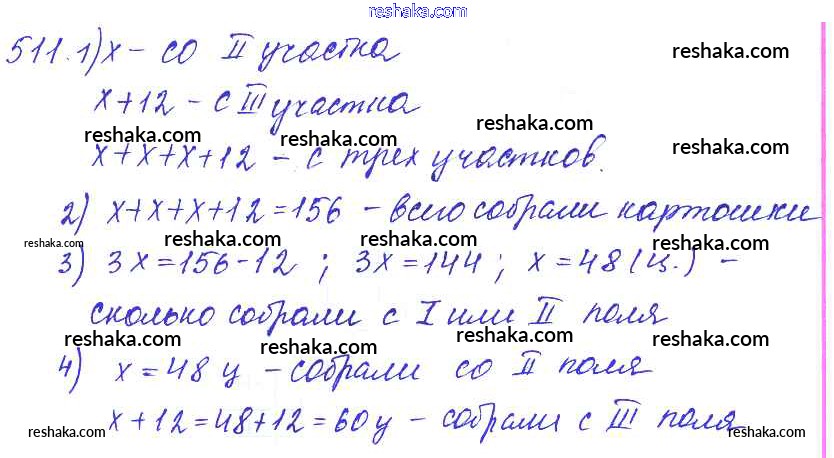 reshaka.com
511. 1) x – со II участка
reshaka.com
x+12 – с III участка
reshaka.com reshaka.com reshaka.com reshaka.com
x+x+x+12 – с трех участков.
2) x+x+x+12=156 – всего собрали картошки
reshaka.com reshaka.com reshaka.com reshaka.com
3) 3x=156-12 ; 3x=144 ; x=48 (ц.) –
сколько собрали с I или II поля
reshaka.com reshaka.com reshaka.com reshaka.com
4) x=48 ц – собрали со II поля
x+12=48+12=60ц – собрали с III поля
reshaka.com reshaka.com reshaka.com reshaka.com